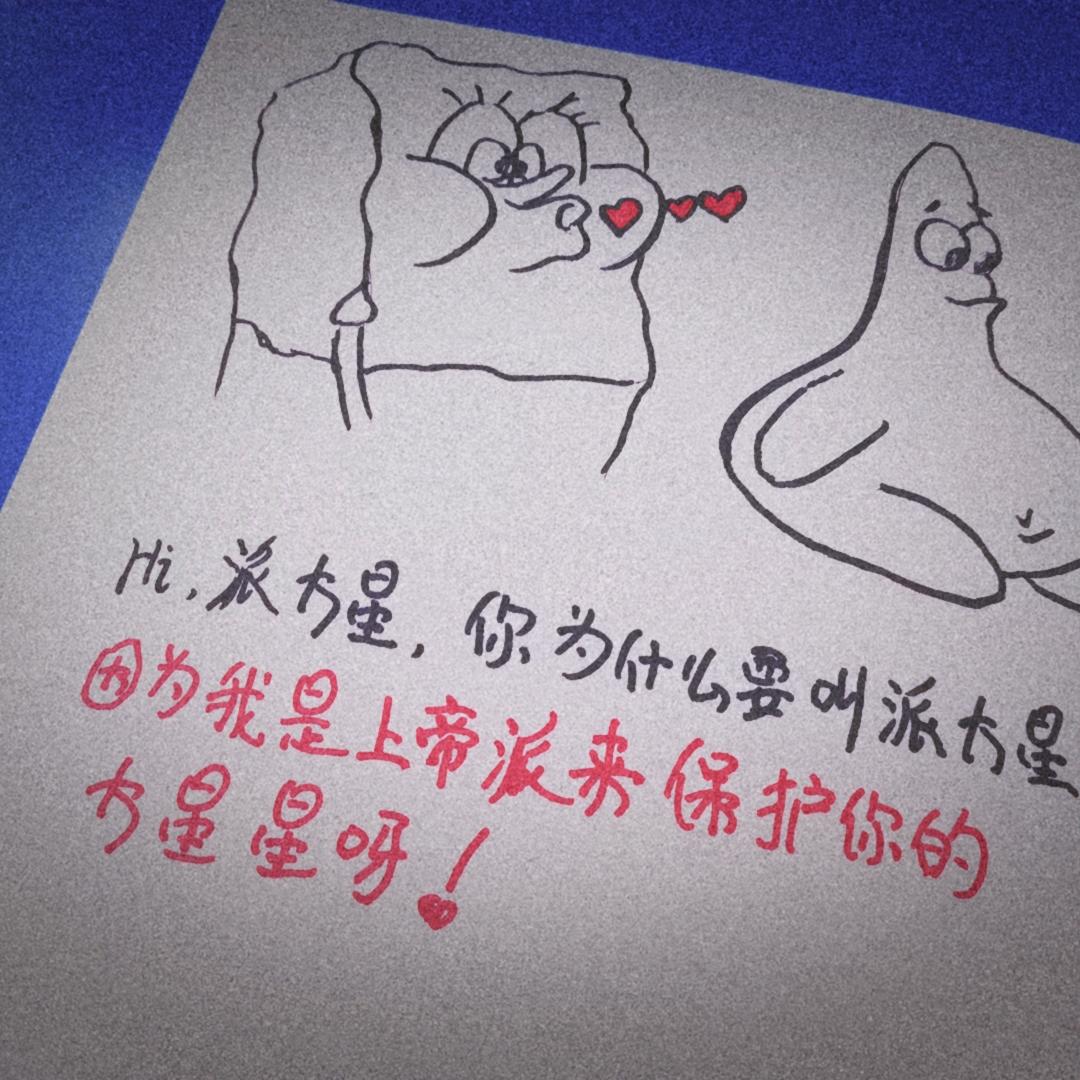 Hi,派大星,你为什么要叫派大星
因为我是上帝派来保护你的
大星星呀!